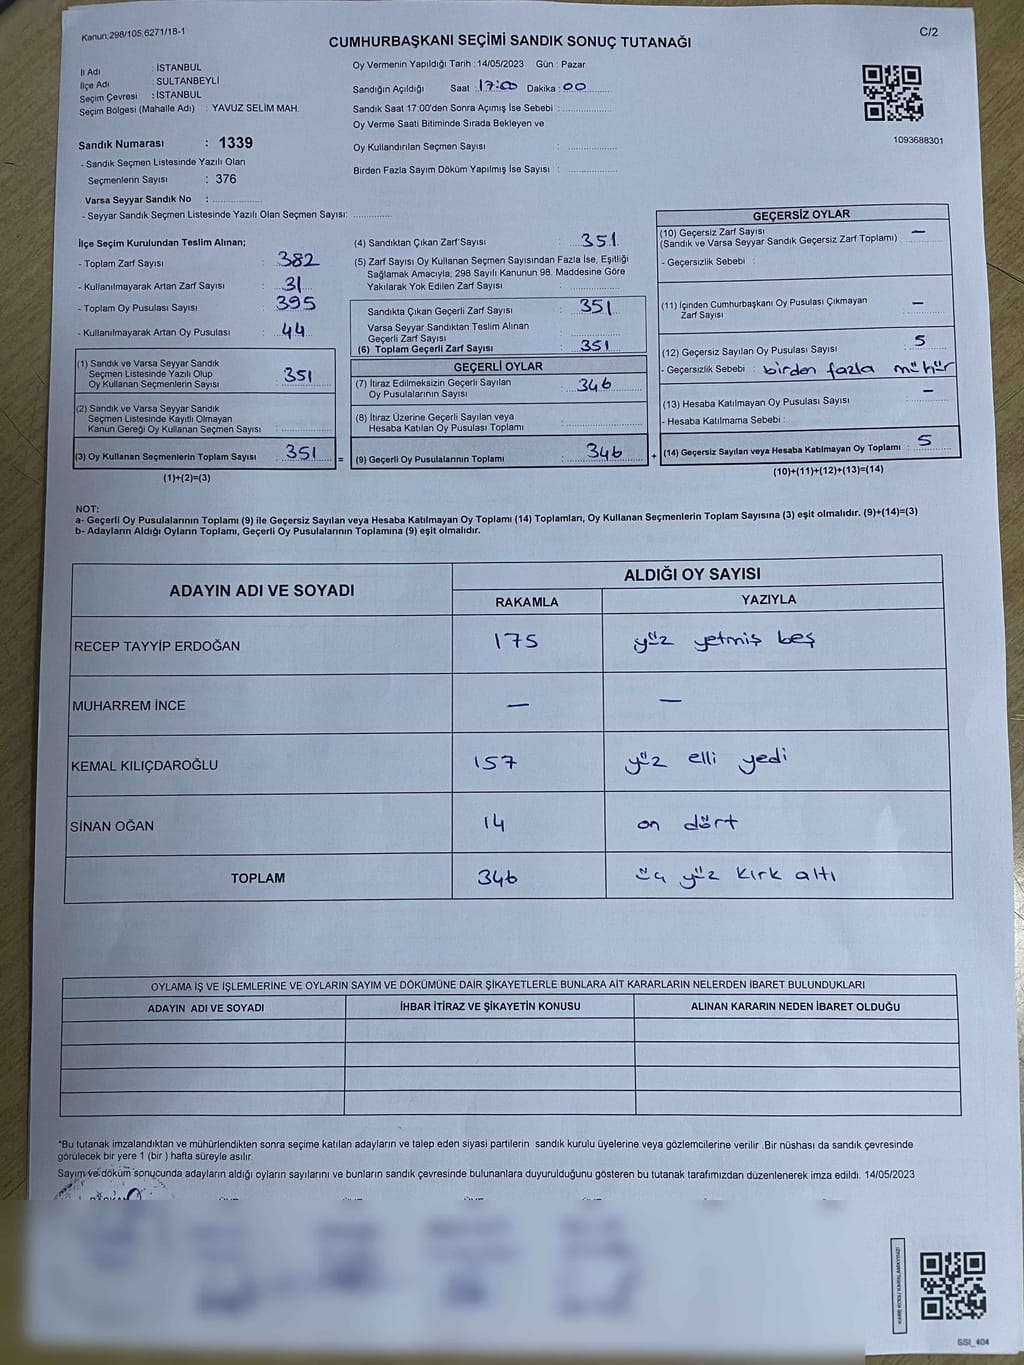 Kanun.298/105,6271/18-1
C/2
CUMHURBAŞKANI SEÇİMİ SANDIK SONUÇ TUTANAĞI
İl Adı : İSTANBUL
İlçe Adı : SULTANBEYLİ
Seçim Çevresi : İSTANBUL
Seçim Bölgesi (Mahalle Adı) : YAVUZ SELİM MAH.
Oy Vermenin Yapıldığı Tarih : 14/05/2023 Gün : Pazar
Sandığın Açıldığı Saat : 17:00 Dakika : 00
Sandık Saat 17:00'den Sonra Açımış İse Sebebi :
Oy Verme Saati Bitiminde Sırada Bekleyen ve
Oy Kullandırılan Seçmen Sayısı :
Birden Fazla Sayım Döküm Yapılmış İse Sayısı :
1093688301
Sandık Numarası : 1339
- Sandık Seçmen Listesinde Yazılı Olan
Seçmenlerin Sayısı : 376
Varsa Seyyar Sandık No :
- Seyyar Sandık Seçmen Listesinde Yazılı Olan Seçmen Sayısı:
İlçe Seçim Kurulundan Teslim Alınan;
- Toplam Zarf Sayısı : 382
- Kullanılmayarak Artan Zarf Sayısı : 31
- Toplam Oy Pusulası Sayısı : 395
- Kullanılmayarak Artan Oy Pusulası : 44
(1) Sandık ve Varsa Seyyar Sandık
Seçmen Listesinde Yazılı Olup
Oy Kullanan Seçmenlerin Sayısı : 351
(2) Sandık ve Varsa Seyyar Sandık
Seçmen Listesinde Kayıtlı Olmayan
Kanun Gereği Oy Kullanan Seçmen Sayısı :
(3) Oy Kullanan Seçmenlerin Toplam Sayısı : 351 =
(1)+(2)=(3)
(4) Sandıktan Çıkan Zarf Sayısı : 351
(5) Zarf Sayısı Oy Kullanan Seçmen Sayısından Fazla İse, Eşitliği
Sağlamak Amacıyla; 298 Sayılı Kanunun 98. Maddesine Göre
Yakılarak Yok Edilen Zarf Sayısı :
Sandıkta Çıkan Geçerli Zarf Sayısı : 351
Varsa Seyyar Sandıktan Teslim Alınan
Geçerli Zarf Sayısı :
(6) Toplam Geçerli Zarf Sayısı : 351
GEÇERLİ OYLAR
(7) İtiraz Edilmeksizin Geçerli Sayılan
Oy Pusulalarının Sayısı : 346
(8) İtiraz Üzerine Geçerli Sayılan veya
Hesaba Katılan Oy Pusulası Toplamı :
(9) Geçerli Oy Pusulalarının Toplamı : 346 +
GEÇERSİZ OYLAR
(10) Geçersiz Zarf Sayısı : —
(Sandık ve Varsa Seyyar Sandık Geçersiz Zarf Toplamı)
- Geçersizlik Sebebi :
(11) İçinden Cumhurbaşkanı Oy Pusulası Çıkmayan
Zarf Sayısı : —
(12) Geçersiz Sayılan Oy Pusulası Sayısı : 5
- Geçersizlik Sebebi : birden fazla mühür
(13) Hesaba Katılmayan Oy Pusulası Sayısı : —
- Hesaba Katılmama Sebebi :
(14) Geçersiz Sayılan veya Hesaba Katılmayan Oy Toplamı : 5
(10)+(11)+(12)+(13)=(14)
NOT:
a- Geçerli Oy Pusulalarının Toplamı (9) ile Geçersiz Sayılan veya Hesaba Katılmayan Oy Toplamı (14) Toplamları, Oy Kullanan Seçmenlerin Toplam Sayısına (3) eşit olmalıdır. (9)+(14)=(3)
b- Adayların Aldığı Oyların Toplamı, Geçerli Oy Pusulalarının Toplamına (9) eşit olmalıdır.
ADAYIN ADI VE SOYADI ALDIĞI OY SAYISI
RAKAMLA YAZIYLA
RECEP TAYYİP ERDOĞAN 175 yüz yetmiş beş
MUHARREM İNCE — —
KEMAL KILIÇDAROĞLU 157 yüz elli yedi
SİNAN OĞAN 14 on dört
TOPLAM 346 üç yüz kırk altı
OYLAMA İŞ VE İŞLEMLERİNE VE OYLARIN SAYIM VE DÖKÜMÜNE DAİR ŞİKAYETLERLE BUNLARA AİT KARARLARIN NELERDEN İBARET BULUNDUKLARI
ADAYIN ADI VE SOYADI İHBAR İTİRAZ VE ŞİKAYETİN KONUSU ALINAN KARARIN NEDEN İBARET OLDUĞU
*Bu tutanak imzalandıktan ve mühürlendikten sonra seçime katılan adayların ve talep eden siyasi partilerin sandık kurulu üyelerine veya gözlemcilerine verilir .Bir nüshası da sandık çevresinde
görülecek bir yere 1 (bir ) hafta süreyle asılır.
Sayım ve döküm sonucunda adayların aldığı oyların sayılarını ve bunların sandık çevresinde bulunanlara duyurulduğunu gösteren bu tutanak tarafımızdan düzenlenerek imza edildi. 14/05/2023
KARE KODU KARALAMAYINIZ!
SSI_404